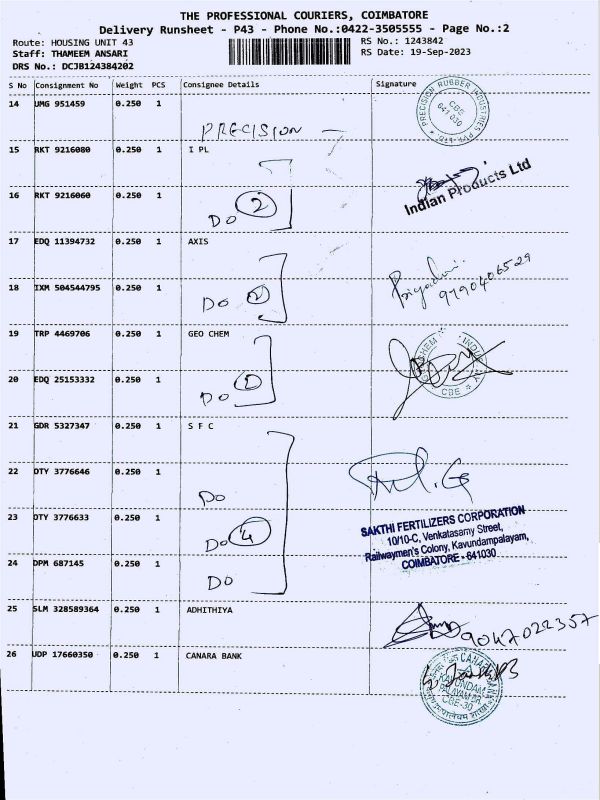 THE PROFESSIONAL COURIERS, COIMBATORE
Delivery Runsheet - P43 - Phone No.:0422-3505555 - Page No.:2
Route: HOUSING UNIT 43 RS No.: 1243842
Staff: THAMEEM ANSARI RS Date: 19-Sep-2023
DRS No.: DCJB124384202
S No Consignment No Weight PCS Consignee Details Signature
14 UMG 951459 0.250 1 PRECISION
PRECISION RUBBER INDUSTRIES PVT. LTD.
CBE
641 030
15 RKT 9216080 0.250 1 I PL
Indian Products Ltd
16 RKT 9216060 0.250 1
DO 2
17 EDQ 11394732 0.250 1 AXIS
Priyadn
9790406529
18 IXM 504544795 0.250 1
DO 2
19 TRP 4469706 0.250 1 GEO CHEM
CBE
20 EDQ 25153332 0.250 1
DO 1
21 GDR 5327347 0.250 1 S F C
22 DTY 3776646 0.250 1
DO
23 DTY 3776633 0.250 1
DO 4
SAKTHI FERTILIZERS CORPORATION
10/10-C, Venkatasamy Street,
Railwaymen's Colony, Kavundampalayam,
COIMBATORE - 641030
24 DPM 687145 0.250 1
DO
25 SLM 328589364 0.250 1 ADHITHIYA
9047022357
26 UDP 17660350 0.250 1 CANARA BANK
KAVUNDAM
PALAYAM
CBE-30